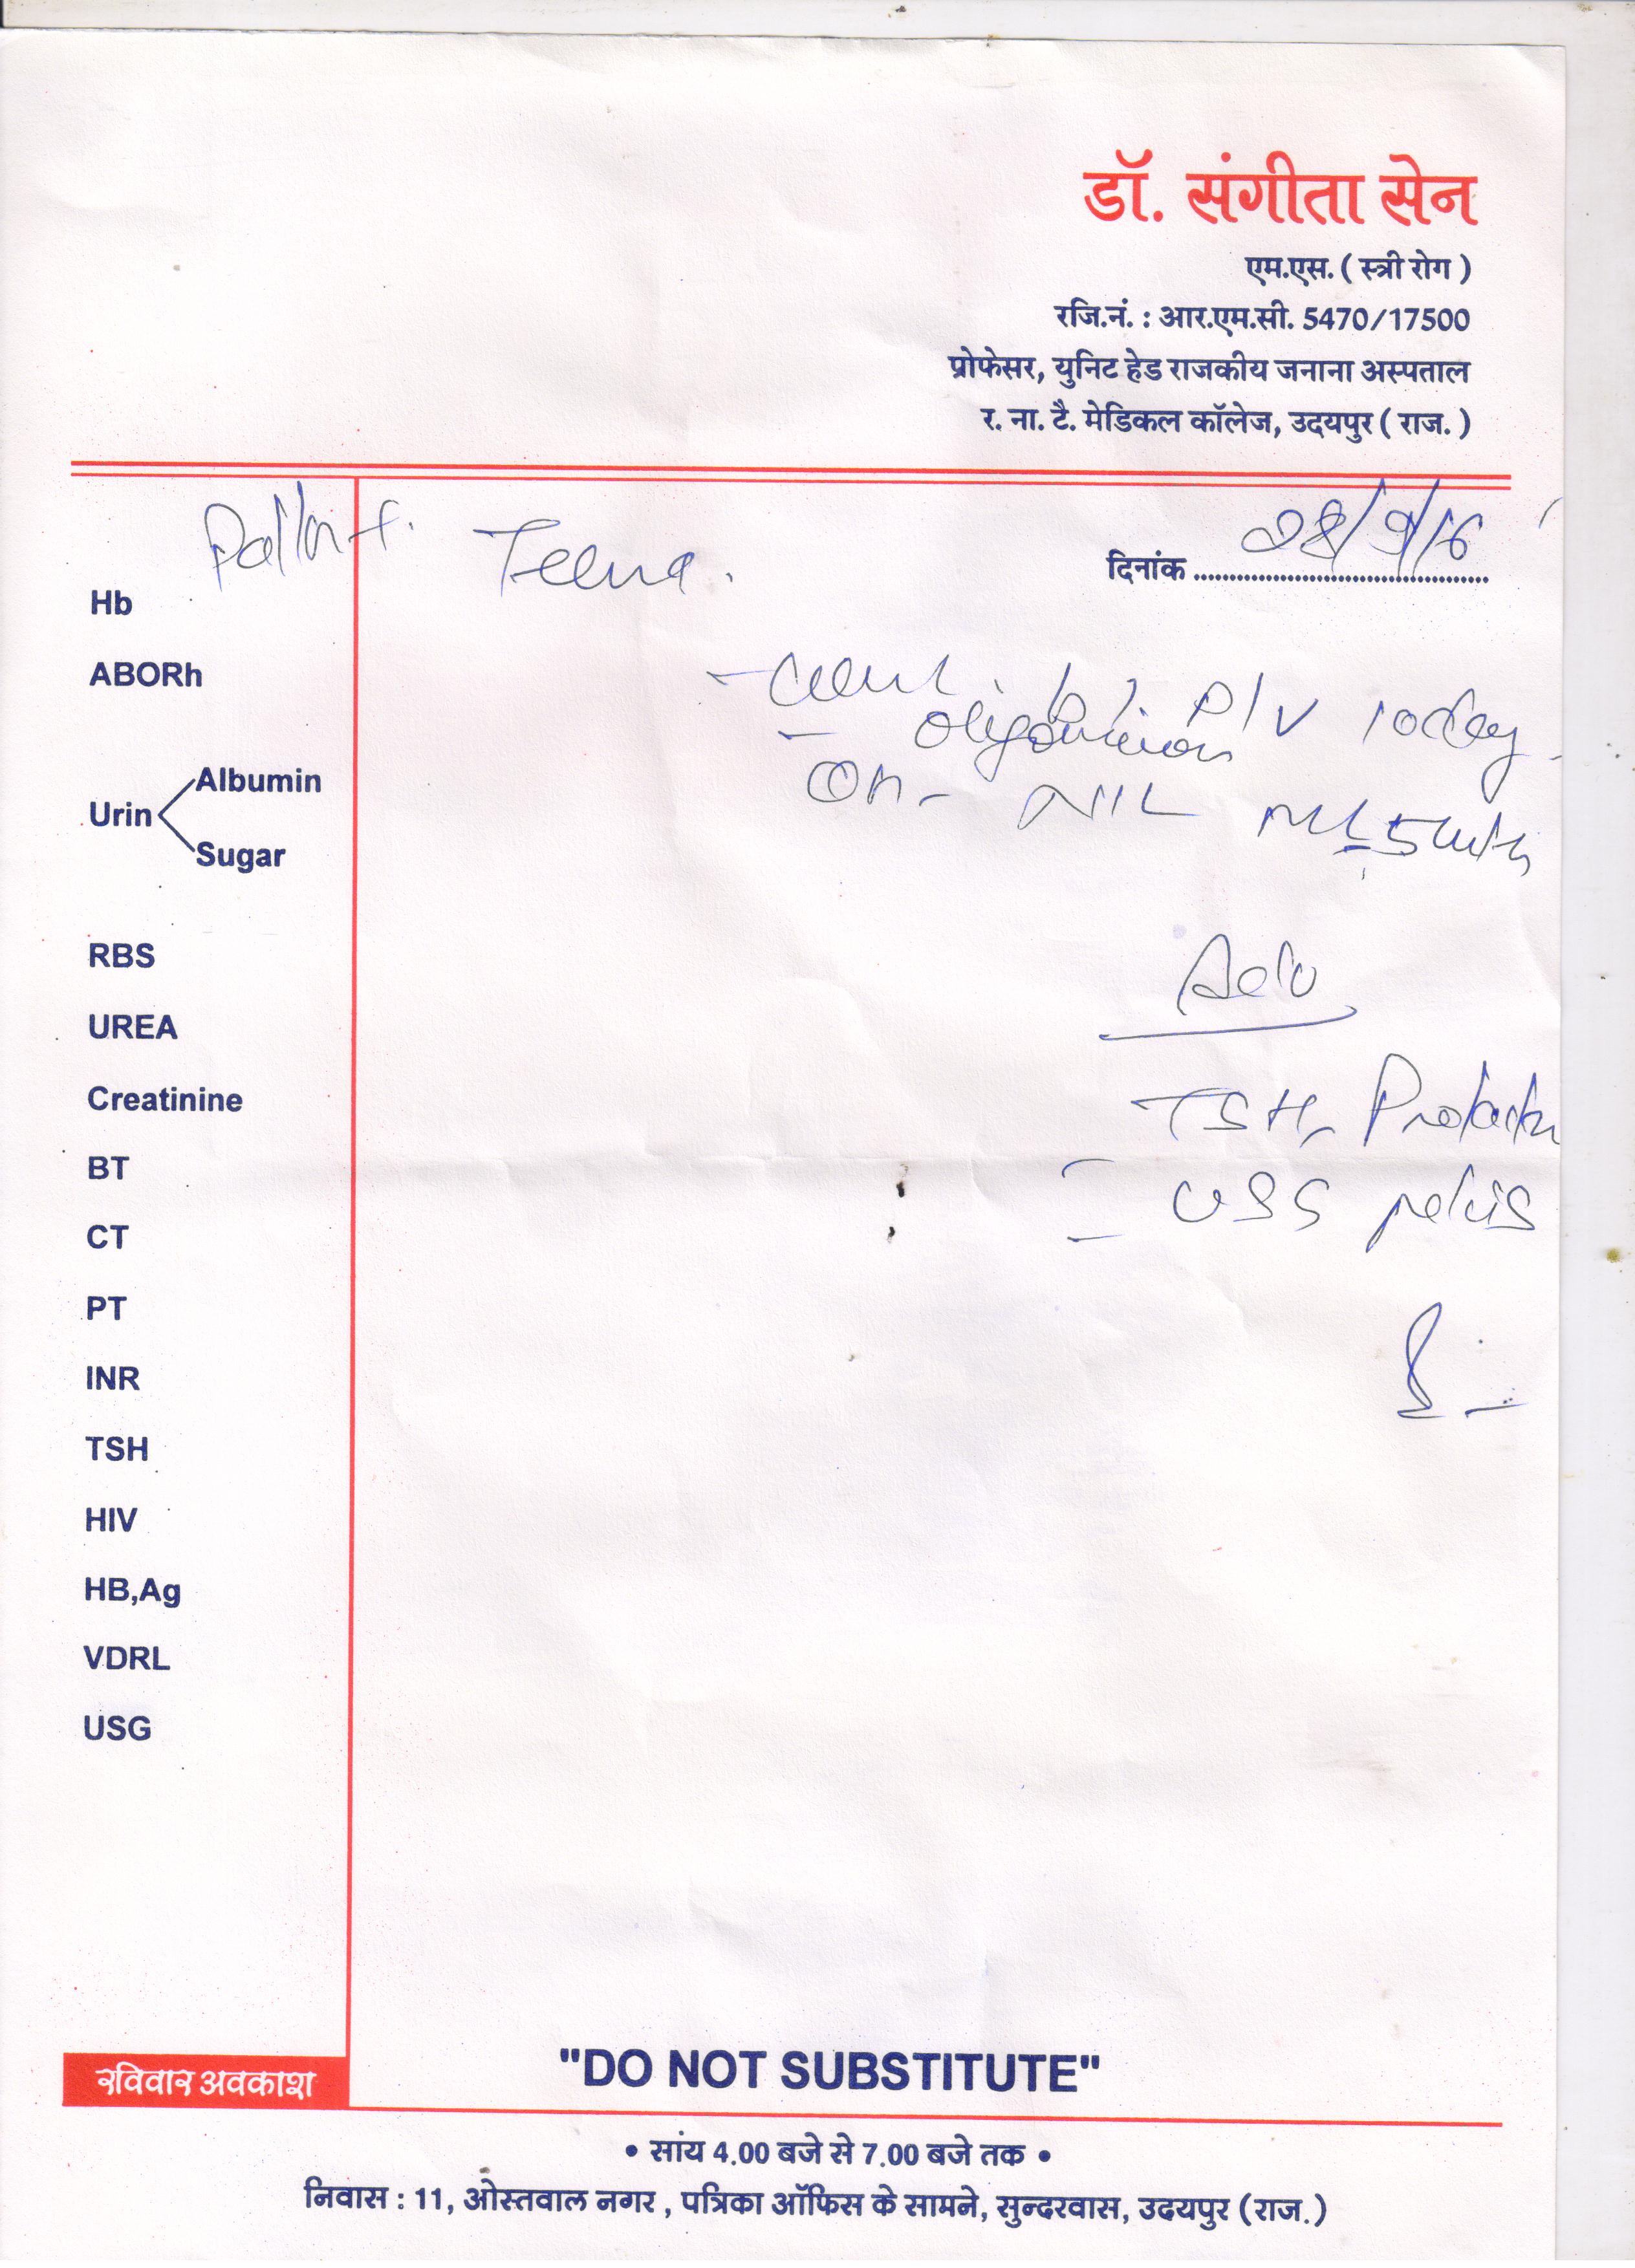 डॉ. संगीता सेन
एम.एस. ( स्त्री रोग )
रजि.नं. : आर.एम.सी. 5470/17500
प्रोफेसर, युनिट हेड राजकीय जनाना अस्पताल
र. ना. टै. मेडिकल कॉलेज, उदयपुर ( राज. )
Teena.
दिनांक 28/9/16
Hb
ABORh
P/V today
Urin
Albumin
Sugar
On - NIL
RBS
UREA
Creatinine
BT
CT
PT
INR
TSH
HIV
HB,Ag
VDRL
USG
Adv
TSH, Prolactin
- USG pelvis
रविवार अवकाश
"DO NOT SUBSTITUTE"
• सांय 4.00 बजे से 7.00 बजे तक •
निवास : 11, ओस्तवाल नगर , पत्रिका ऑफिस के सामने, सुन्दरवास, उदयपुर (राज.)